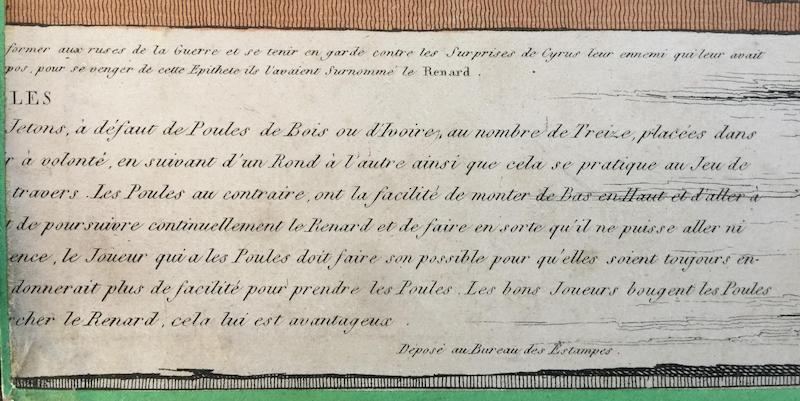 former aux ruses de la Guerre et se tenir en garde contre les Surprises de Cyrus leur ennemi qui leur avait
pos, pour se venger de cette Epithete ils l'avaient Surnommé le Renard .
LES
Jetons, à défaut de Poules de Bois ou d'Ivoire, au nombre de Treize, placées dans
r à volonté, en suivant d'un Rond à l'autre ainsi que cela se pratique au Jeu de
travers . Les Poules au contraire, ont la facilité de monter de Bas en Haut et d'aller à
t de poursuivre continuellement le Renard et de faire en sorte qu'il ne puisse aller ni
ence, le Joueur qui a les Poules doit faire son possible pour qu'elles soient toujours en-
donnerait plus de facilité pour prendre les Poules . Les bons Joueurs bougent les Poules
rcher le Renard, cela lui est avantageux .
Déposé au Bureau des Estampes .